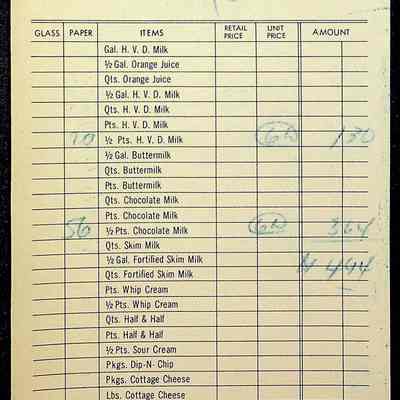 GLASS PAPER ITEMS RETAIL PRICE UNIT PRICE AMOUNT
Gal. H. V. D. Milk
½ Gal. Orange Juice
Qts. Orange Juice
½ Gal. H. V. D. Milk
Qts. H. V. D. Milk
Pts. H. V. D. Milk
20 ½ Pts. H. V. D. Milk 6½ 130
½ Gal. Buttermilk
Qts. Buttermilk
Pts. Buttermilk
Qts. Chocolate Milk
Pts. Chocolate Milk
56 ½ Pts. Chocolate Milk 6½ 364
Qts. Skim Milk
½ Gal. Fortified Skim Milk 494
Qts. Fortified Skim Milk
Pts. Whip Cream
½ Pts. Whip Cream
Qts. Half & Half
Pts. Half & Half
½ Pts. Sour Cream
Pkgs. Dip-N- Chip
Pkgs. Cottage Cheese
Lbs. Cottage Cheese